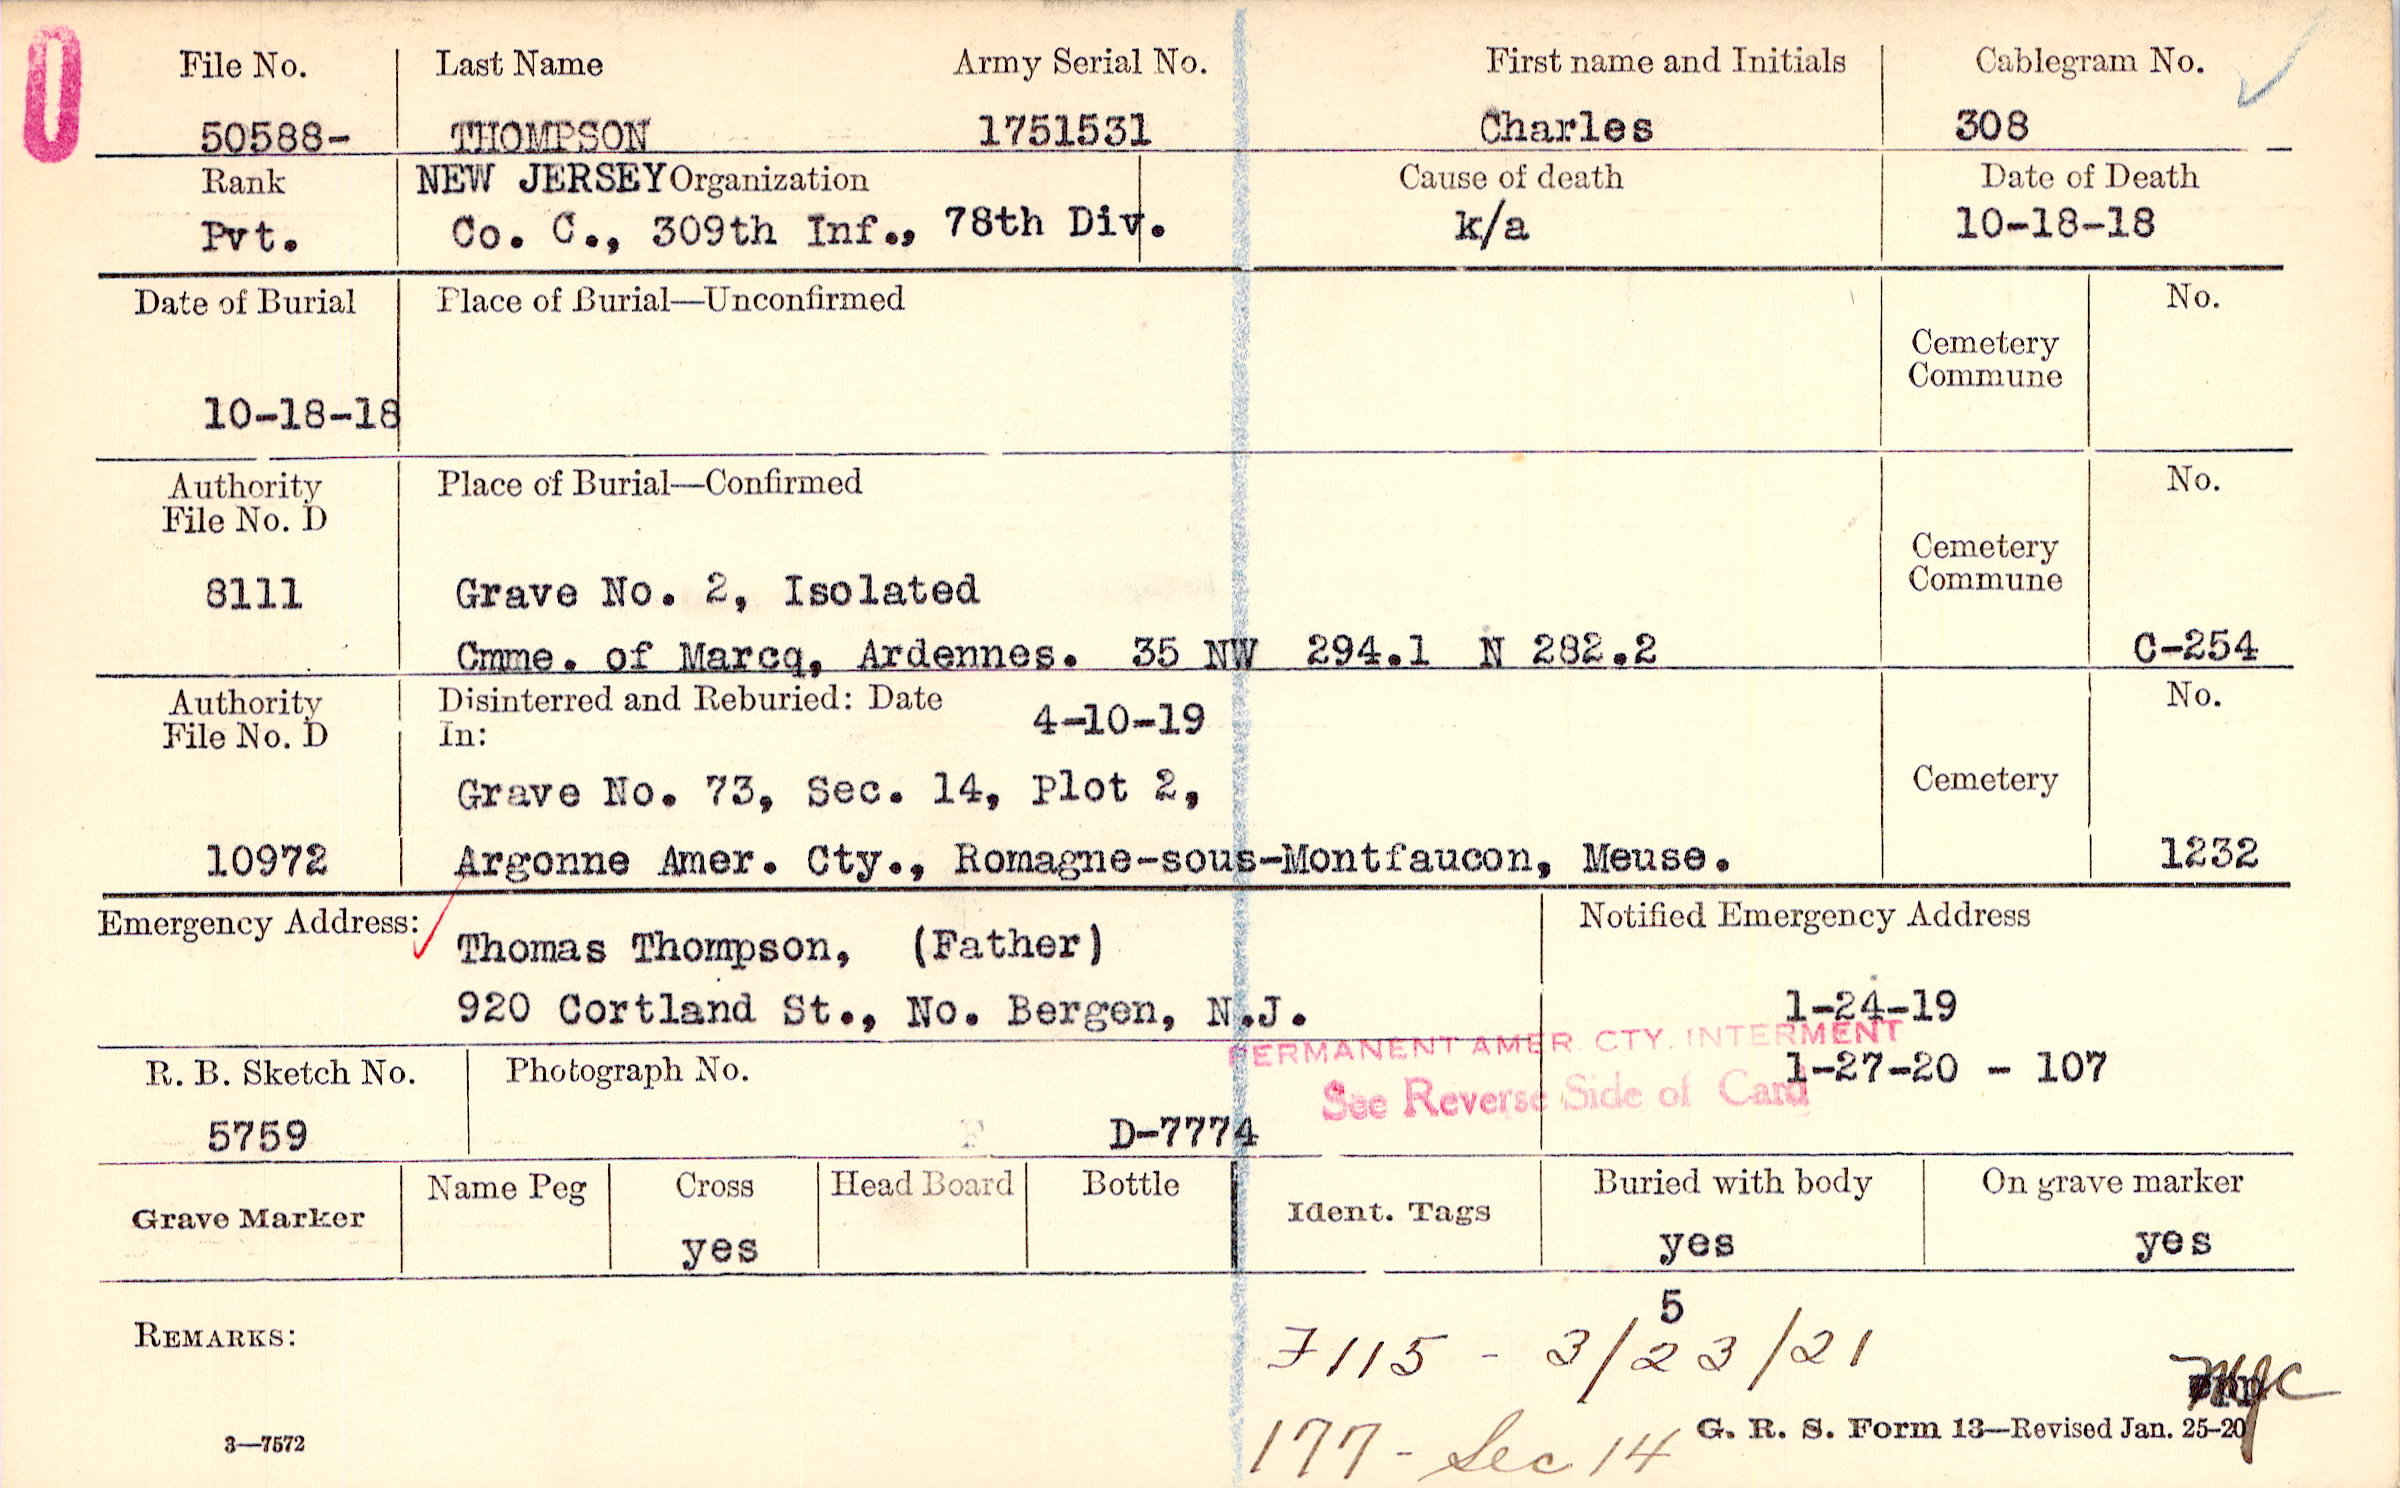 0
File No. Last Name Army Serial No. First name and Initials Cablegram No.
50588- THOMPSON 1751531 Charles 308
Rank NEW JERSEY Organization Cause of death Date of Death
Pvt. Co. C., 309th Inf., 78th Div. k/a 10-18-18
Date of Burial Place of Burial—Unconfirmed No.
Cemetery
Commune
10-18-18
Authority Place of Burial—Confirmed No.
File No. D
Cemetery
Commune
8111 Grave No. 2, Isolated
Cmme. of Marcq, Ardennes. 35 NW 294.1 N 282.2 C-254
Authority Disinterred and Reburied: Date 4-10-19 No.
File No. D In:
Grave No. 73, Sec. 14, Plot 2, Cemetery
10972 Argonne Amer. Cty., Romagne-sous-Montfaucon, Meuse. 1232
Emergency Address: Notified Emergency Address
Thomas Thompson, (Father)
920 Cortland St., No. Bergen, N.J. 1-24-19
PERMANENT AMER. CTY. INTERMENT
R. B. Sketch No. Photograph No. 1-27-20 - 107
See Reverse Side of Card
5759 F D-7774
Grave Marker Name Peg Cross Head Board Bottle Ident. Tags Buried with body On grave marker
yes yes yes
5
REMARKS: F115 - 3/23/21
3—7572 177 - Sec 14 G. R. S. Form 13—Revised Jan. 25-20